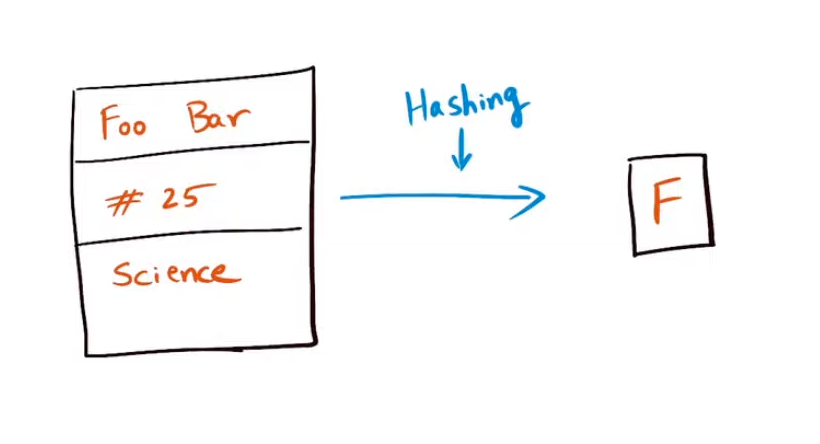 Foo Bar
# 25
Science
Hashing
F